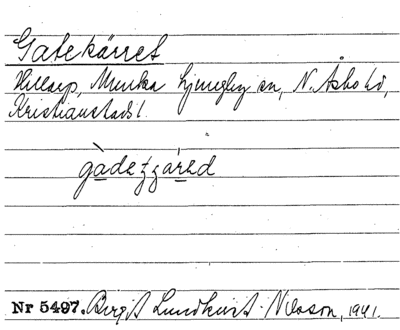 Gatekärret
Hillarp, Munka Ljungby sn, N. Åsbo hd,
Kristianstads l.
gàdetʒáred
Nr 5497. Birgit Lundkvist-Nilsson, 1941.